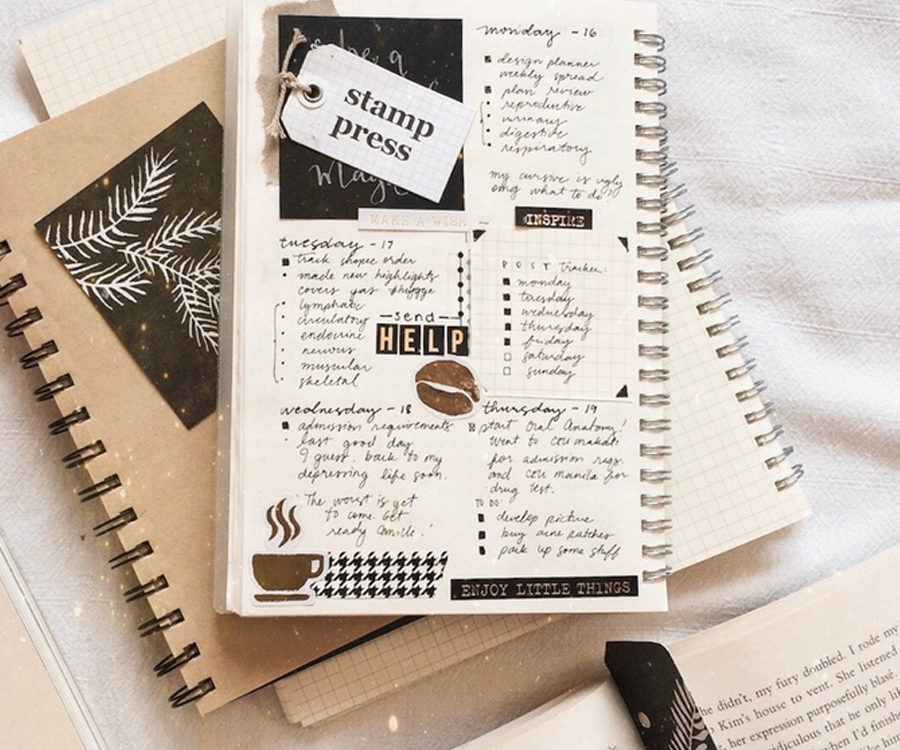 be a
stamp
press
magic
MAKE A WISH
monday - 16
design planner
weekly spread
plan review
reproductive
urinary
digestive
respiratory
my cursive is ugly
omg what to do?
INSPIRE
tuesday - 17
track shopee order
made new highlights
covers yas #hygge
lymphatic
circulatory
endocrine
nervous
muscular
skeletal
send
HELP
POST Tracker:
monday
tuesday
wednesday
thursday
friday
saturday
sunday
wednesday - 18
admission requirements
last good day
I guess. back to my
depressing life soon.
"The worst is yet
to come. Get
ready Camille."
thursday - 19
start Oral Anatomy!
went to CEU makati
for admission reqs.
and CEU manila for
drug test.
TO DO
develop picture
buy aine patches
pack up some stuff
ENJOY LITTLE THINGS
he didn't, my fury doubled. I rode my
Kim's house to vent. She listened
her expression purposefully blasé.
ridiculous that he only
when I'd finish